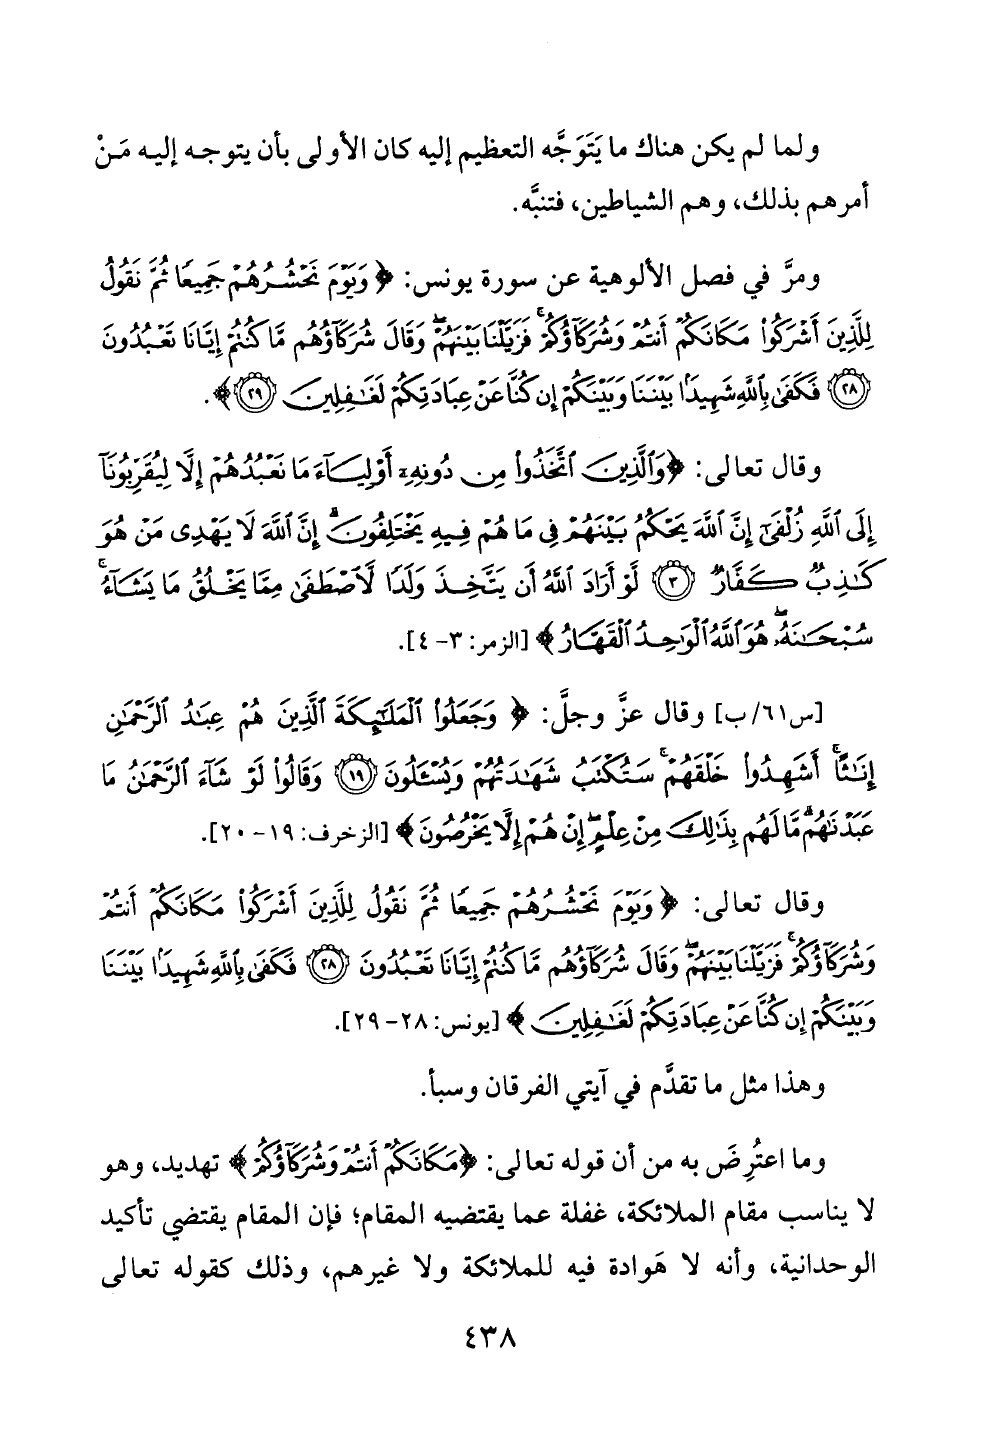 ولما لم يكن هناك ما يَتَوَجَّه التعظيم إليه كان الأولى بأن يتوجه إليه مَنْ
أمرهم بذلك، وهم الشياطين، فتنبَّه.
ومرَّ في فصل الألوهية عن سورة يونس: ﴿وَيَوْمَ نَحْشُرُهُمْ جَمِيعًا ثُمَّ نَقُولُ
لِلَّذِينَ أَشْرَكُوا۟ مَكَانَكُمْ أَنتُمْ وَشُرَكَآؤُكُمْ ۚ فَزَيَّلْنَا بَيْنَهُمْ ۖ وَقَالَ شُرَكَآؤُهُم مَّا كُنتُمْ إِيَّانَا تَعْبُدُونَ
۝٢٨ فَكَفَىٰ بِٱللَّهِ شَهِيدًۢا بَيْنَنَا وَبَيْنَكُمْ إِن كُنَّا عَنْ عِبَادَتِكُمْ لَغَـٰفِلِينَ ۝٢٩﴾.
وقال تعالى: ﴿وَٱلَّذِينَ ٱتَّخَذُوا۟ مِن دُونِهِۦٓ أَوْلِيَآءَ مَا نَعْبُدُهُمْ إِلَّا لِيُقَرِّبُونَآ
إِلَى ٱللَّهِ زُلْفَىٰٓ إِنَّ ٱللَّهَ يَحْكُمُ بَيْنَهُمْ فِى مَا هُمْ فِيهِ يَخْتَلِفُونَ ۗ إِنَّ ٱللَّهَ لَا يَهْدِى مَنْ هُوَ
كَـٰذِبٌ كَفَّارٌ ۝٣ لَّوْ أَرَادَ ٱللَّهُ أَن يَتَّخِذَ وَلَدًا لَّٱصْطَفَىٰ مِمَّا يَخْلُقُ مَا يَشَآءُ ۚ
سُبْحَـٰنَهُۥ ۖ هُوَ ٱللَّهُ ٱلْوَٰحِدُ ٱلْقَهَّارُ﴾ [الزمر: ٣-٤].
[س٦١/ب] وقال عزَّ وجلَّ: ﴿وَجَعَلُوا۟ ٱلْمَلَـٰٓئِكَةَ ٱلَّذِينَ هُمْ عِبَـٰدُ ٱلرَّحْمَـٰنِ
إِنَـٰثًا ۚ أَشَهِدُوا۟ خَلْقَهُمْ ۚ سَتُكْتَبُ شَهَـٰدَتُهُمْ وَيُسْـَٔلُونَ ۝١٩ وَقَالُوا۟ لَوْ شَآءَ ٱلرَّحْمَـٰنُ مَا
عَبَدْنَـٰهُم ۗ مَّا لَهُم بِذَٰلِكَ مِنْ عِلْمٍ ۖ إِنْ هُمْ إِلَّا يَخْرُصُونَ﴾ [الزخرف: ١٩-٢٠].
وقال تعالى: ﴿وَيَوْمَ نَحْشُرُهُمْ جَمِيعًا ثُمَّ نَقُولُ لِلَّذِينَ أَشْرَكُوا۟ مَكَانَكُمْ أَنتُمْ
وَشُرَكَآؤُكُمْ ۚ فَزَيَّلْنَا بَيْنَهُمْ ۖ وَقَالَ شُرَكَآؤُهُم مَّا كُنتُمْ إِيَّانَا تَعْبُدُونَ ۝٢٨ فَكَفَىٰ بِٱللَّهِ شَهِيدًۢا بَيْنَنَا
وَبَيْنَكُمْ إِن كُنَّا عَنْ عِبَادَتِكُمْ لَغَـٰفِلِينَ﴾ [يونس: ٢٨-٢٩].
وهذا مثل ما تقدَّم في آيتي الفرقان وسبأ.
وما اعتُرِضَ به من أن قوله تعالى: ﴿مَكَانَكُمْ أَنتُمْ وَشُرَكَآؤُكُمْ﴾ تهديد، وهو
لا يناسب مقام الملائكة، غفلة عما يقتضيه المقام؛ فإن المقام يقتضي تأكيد
الوحدانية، وأنه لا هَوادة فيه للملائكة ولا غيرهم، وذلك كقوله تعالى
٤٣٨